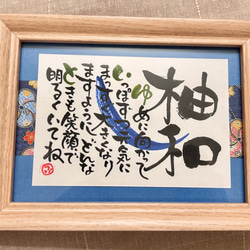 柚和
ゆめに向かって
いっぽずつ元気に
まっすぐ大きくなり
ますように どんな
ときも笑顔で
明るくいてね